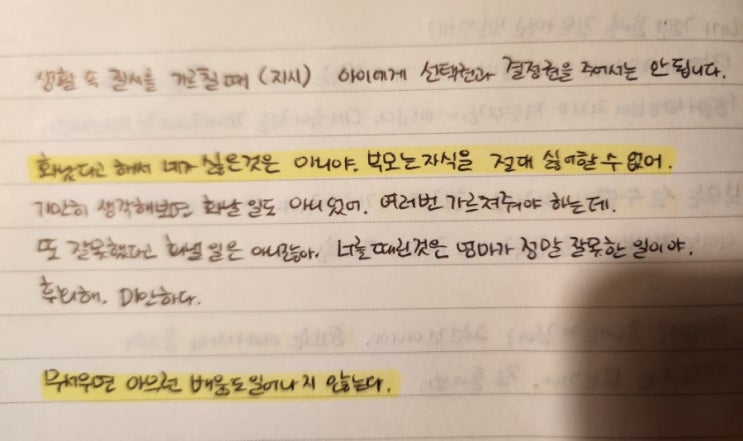 생활 속 질서를 가르칠때 (지시) 아이에게 선택권과 결정권을 주어서는 안됩니다.
화났다고 해서 네가 싫은것은 아니야. 부모는 자식을 절대 싫어할 수 없어.
가만히 생각해보면 화날 일도 아니었어. 여러번 가르쳐줘야 하는데.
또 잘못했다고 화낼 일은 아니잖아. 너를 때린것은 엄마가 정말 잘못한 일이야.
후회해. 미안하다.
무서우면 아무런 배움도 일어나지 않는다.